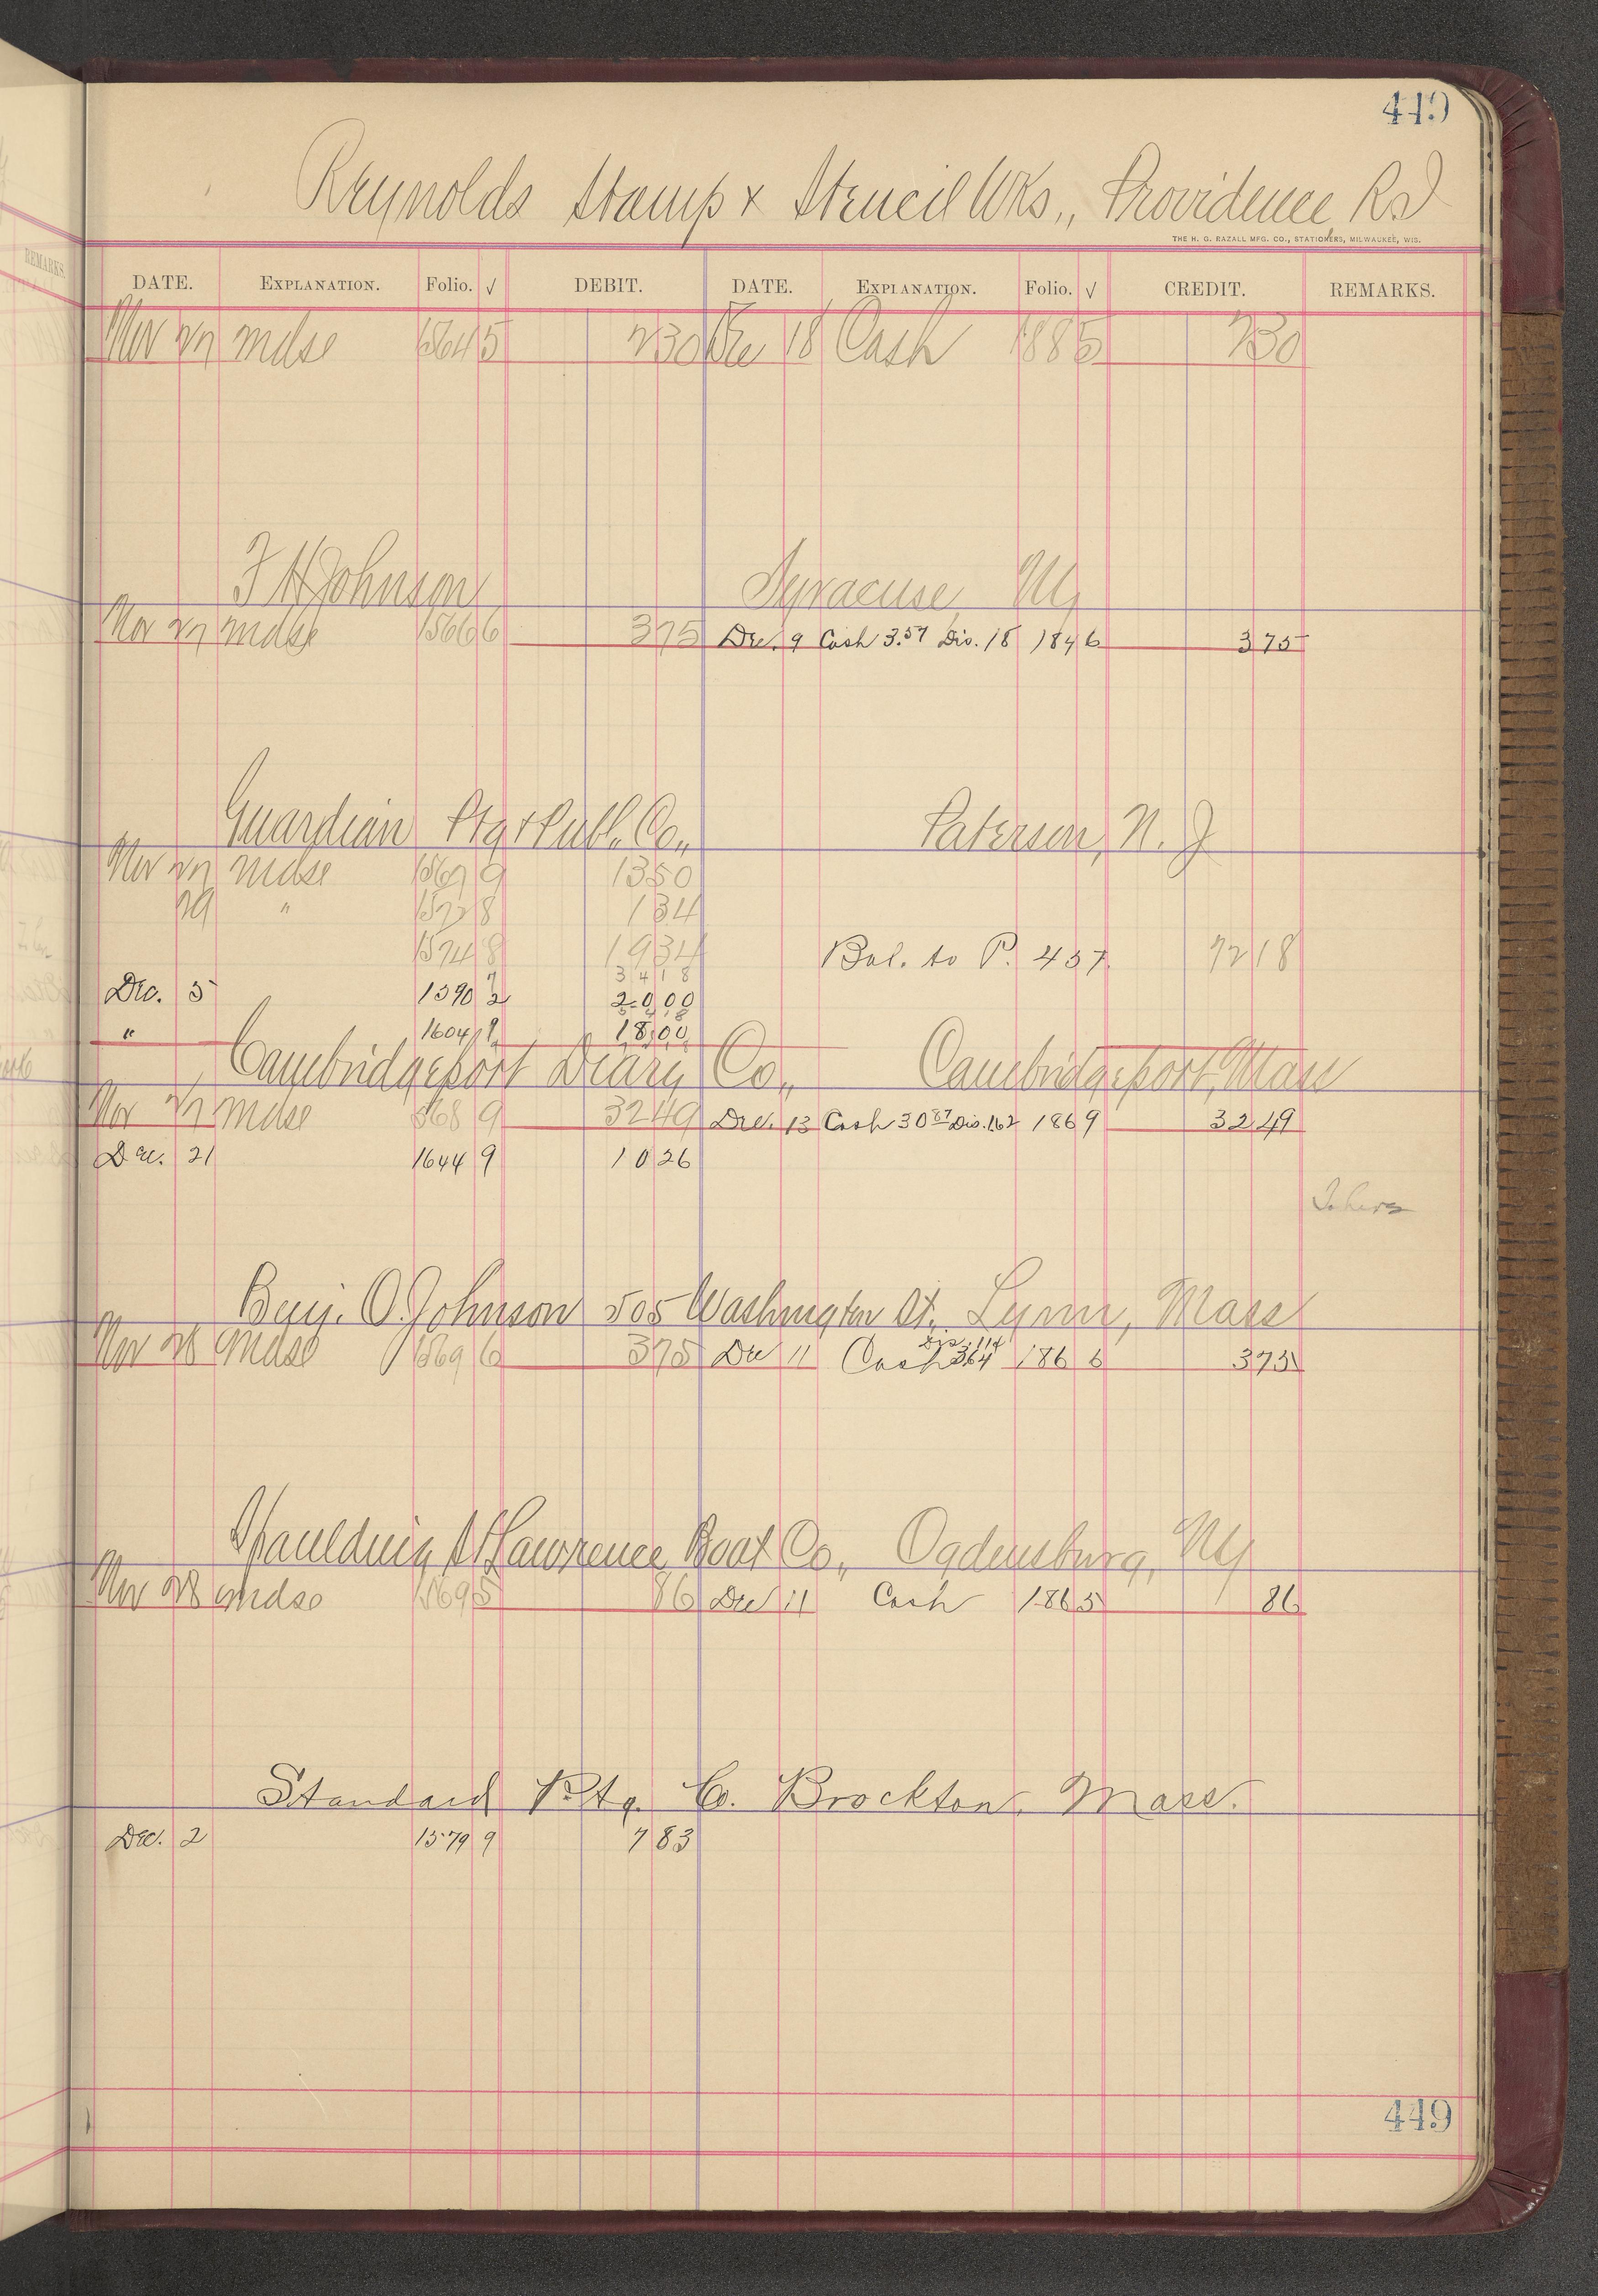 449
Reynolds Stamp & Stencil Wks., Providence R.I
THE H. G. RAZALL MFG. CO., STATIONERS, MILWAUKEE, WIS.
DATE. EXPLANATION. Folio. √ DEBIT. DATE. EXPLANATION. Folio. √ CREDIT. REMARKS.
Nov 27 Mdse 1564 5 230 Dec 18 Cash 188 5 230
F H Johnson Syracuse NY
Nov 27 Mdse 1566 6 375 Dec. 9 Cash 3.57 Dis. 18 184 6 375
Guardian Ptg & Publ. Co., Paterson, N. J
Nov 27 Mdse 1567 9 1350
29 " 1572 8 134
1574 8 1934 Bal. to P. 457 7218
3418
Dec. 5 1590 2 2000
" 1604 9 1800
Cambridgeport Diary Co., Cambridgeport, Mass
Nov 27 Mdse 1568 9 3249 Dec. 13 Cash 30 87 Dis. 1.62 186 9 3249
Dec. 21 1644 9 1026
Benj. O. Johnson 505 Washington St. Lynn, Mass
Dis. 11¢
Nov 28 Mdse 1569 6 375 Dec 11 Cash 364 186 6 375
Spaulding St Lawrence Boat Co., Ogdensburg, NY
Nov 28 Mdse 1569 5 86 Dec 11 Cash 186 5 86
Standard Ptg. Co. Brockton, Mass.
Dec. 2 1579 9 783
449